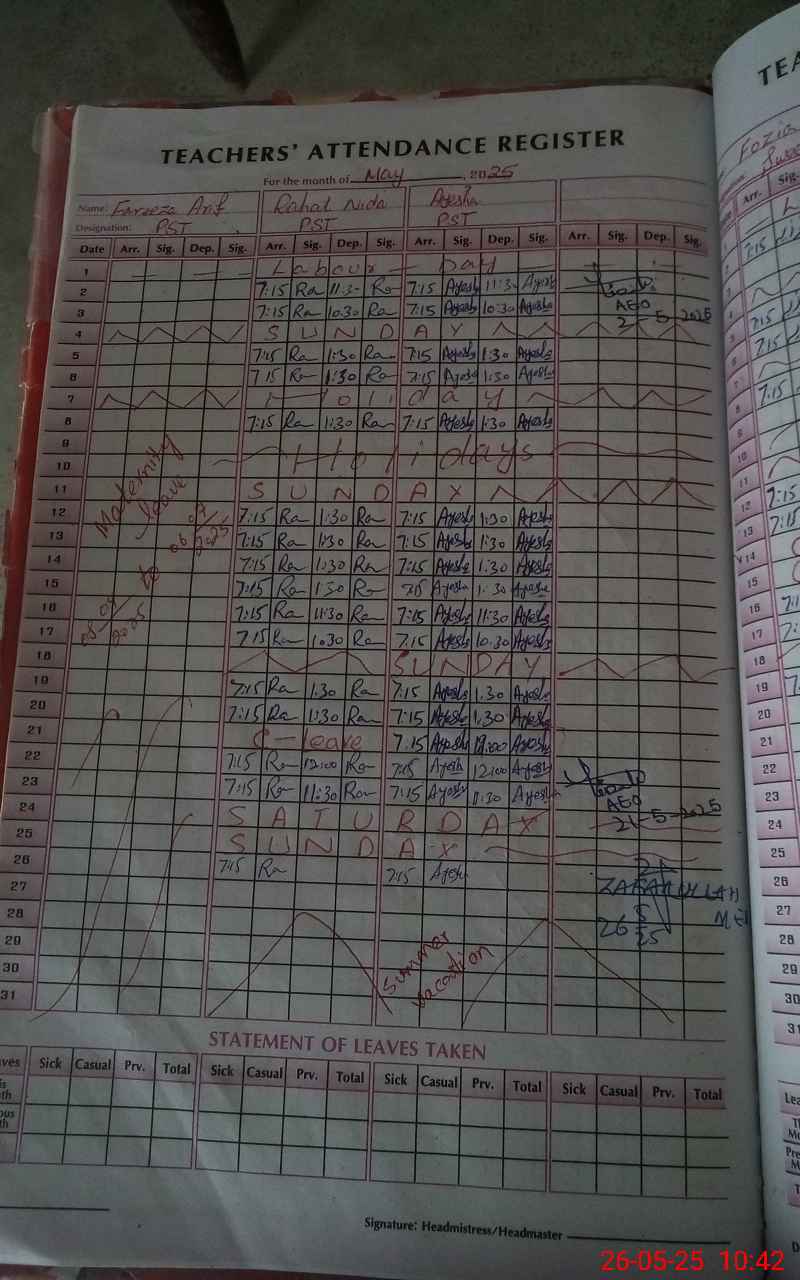 TEACHERS' ATTENDANCE REGISTER
For the month of May, 2025
Name: Farzeza Arif Rahat Nida Ayesha
Designation: PST PST PST
Date Arr. Sig. Dep. Sig. Arr. Sig. Dep. Sig. Arr. Sig. Dep. Sig. Arr. Sig. Dep. Sig.
1 Labour Day
2 7:15 Ra 11:30 Ra 7:15 Ayesha 11:30 Ayesha
3 7:15 Ra 10:30 Ra 7:15 Ayesha 10:30 Ayesha AEO
4 SUNDAY 2-5-2025
5 7:15 Ra 1:30 Ra 7:15 Ayesha 1:30 Ayesha
6 7:15 Ra 1:30 Ra 7:15 Ayesha 1:30 Ayesha
7 Holiday
8 7:15 Ra 1:30 Ra 7:15 Ayesha 1:30 Ayesha
9
10 Holidays
11 SUNDAY
12 7:15 Ra 1:30 Ra 7:15 Ayesha 1:30 Ayesha
13 7:15 Ra 1:30 Ra 7:15 Ayesha 1:30 Ayesha
14 7:15 Ra 1:30 Ra 7:15 Ayesha 1:30 Ayesha
15 7:15 Ra 1:30 Ra 7:15 Ayesha 1:30 Ayesha
16 7:15 Ra 11:30 Ra 7:15 Ayesha 11:30 Ayesha
17 7:15 Ra 10:30 Ra 7:15 Ayesha 10:30 Ayesha
Maternity leave
08/04/2025 to 06/07/2025
18 SUNDAY
19 7:15 Ra 1:30 Ra 7:15 Ayesha 1:30 Ayesha
20 7:15 Ra 1:30 Ra 7:15 Ayesha 1:30 Ayesha
21 C-leave 7:15 Ayesha 12:00 Ayesha
22 7:15 Ra 12:00 Ra 7:15 Ayesha 12:00 Ayesha
23 7:15 Ra 11:30 Ra 7:15 Ayesha 11:30 Ayesha AEO
24 SATURDAY 21-5-2025
25 SUNDAY
26 7:15 Ra 7:15 Ayesha
27 ZAFARULLAH
28
26 5 25
29
30 Summer vacation
31
STATEMENT OF LEAVES TAKEN
Sick Casual Prv. Total Sick Casual Prv. Total Sick Casual Prv. Total Sick Casual Prv. Total
Signature: Headmistress/Headmaster
26-05-25 10:42